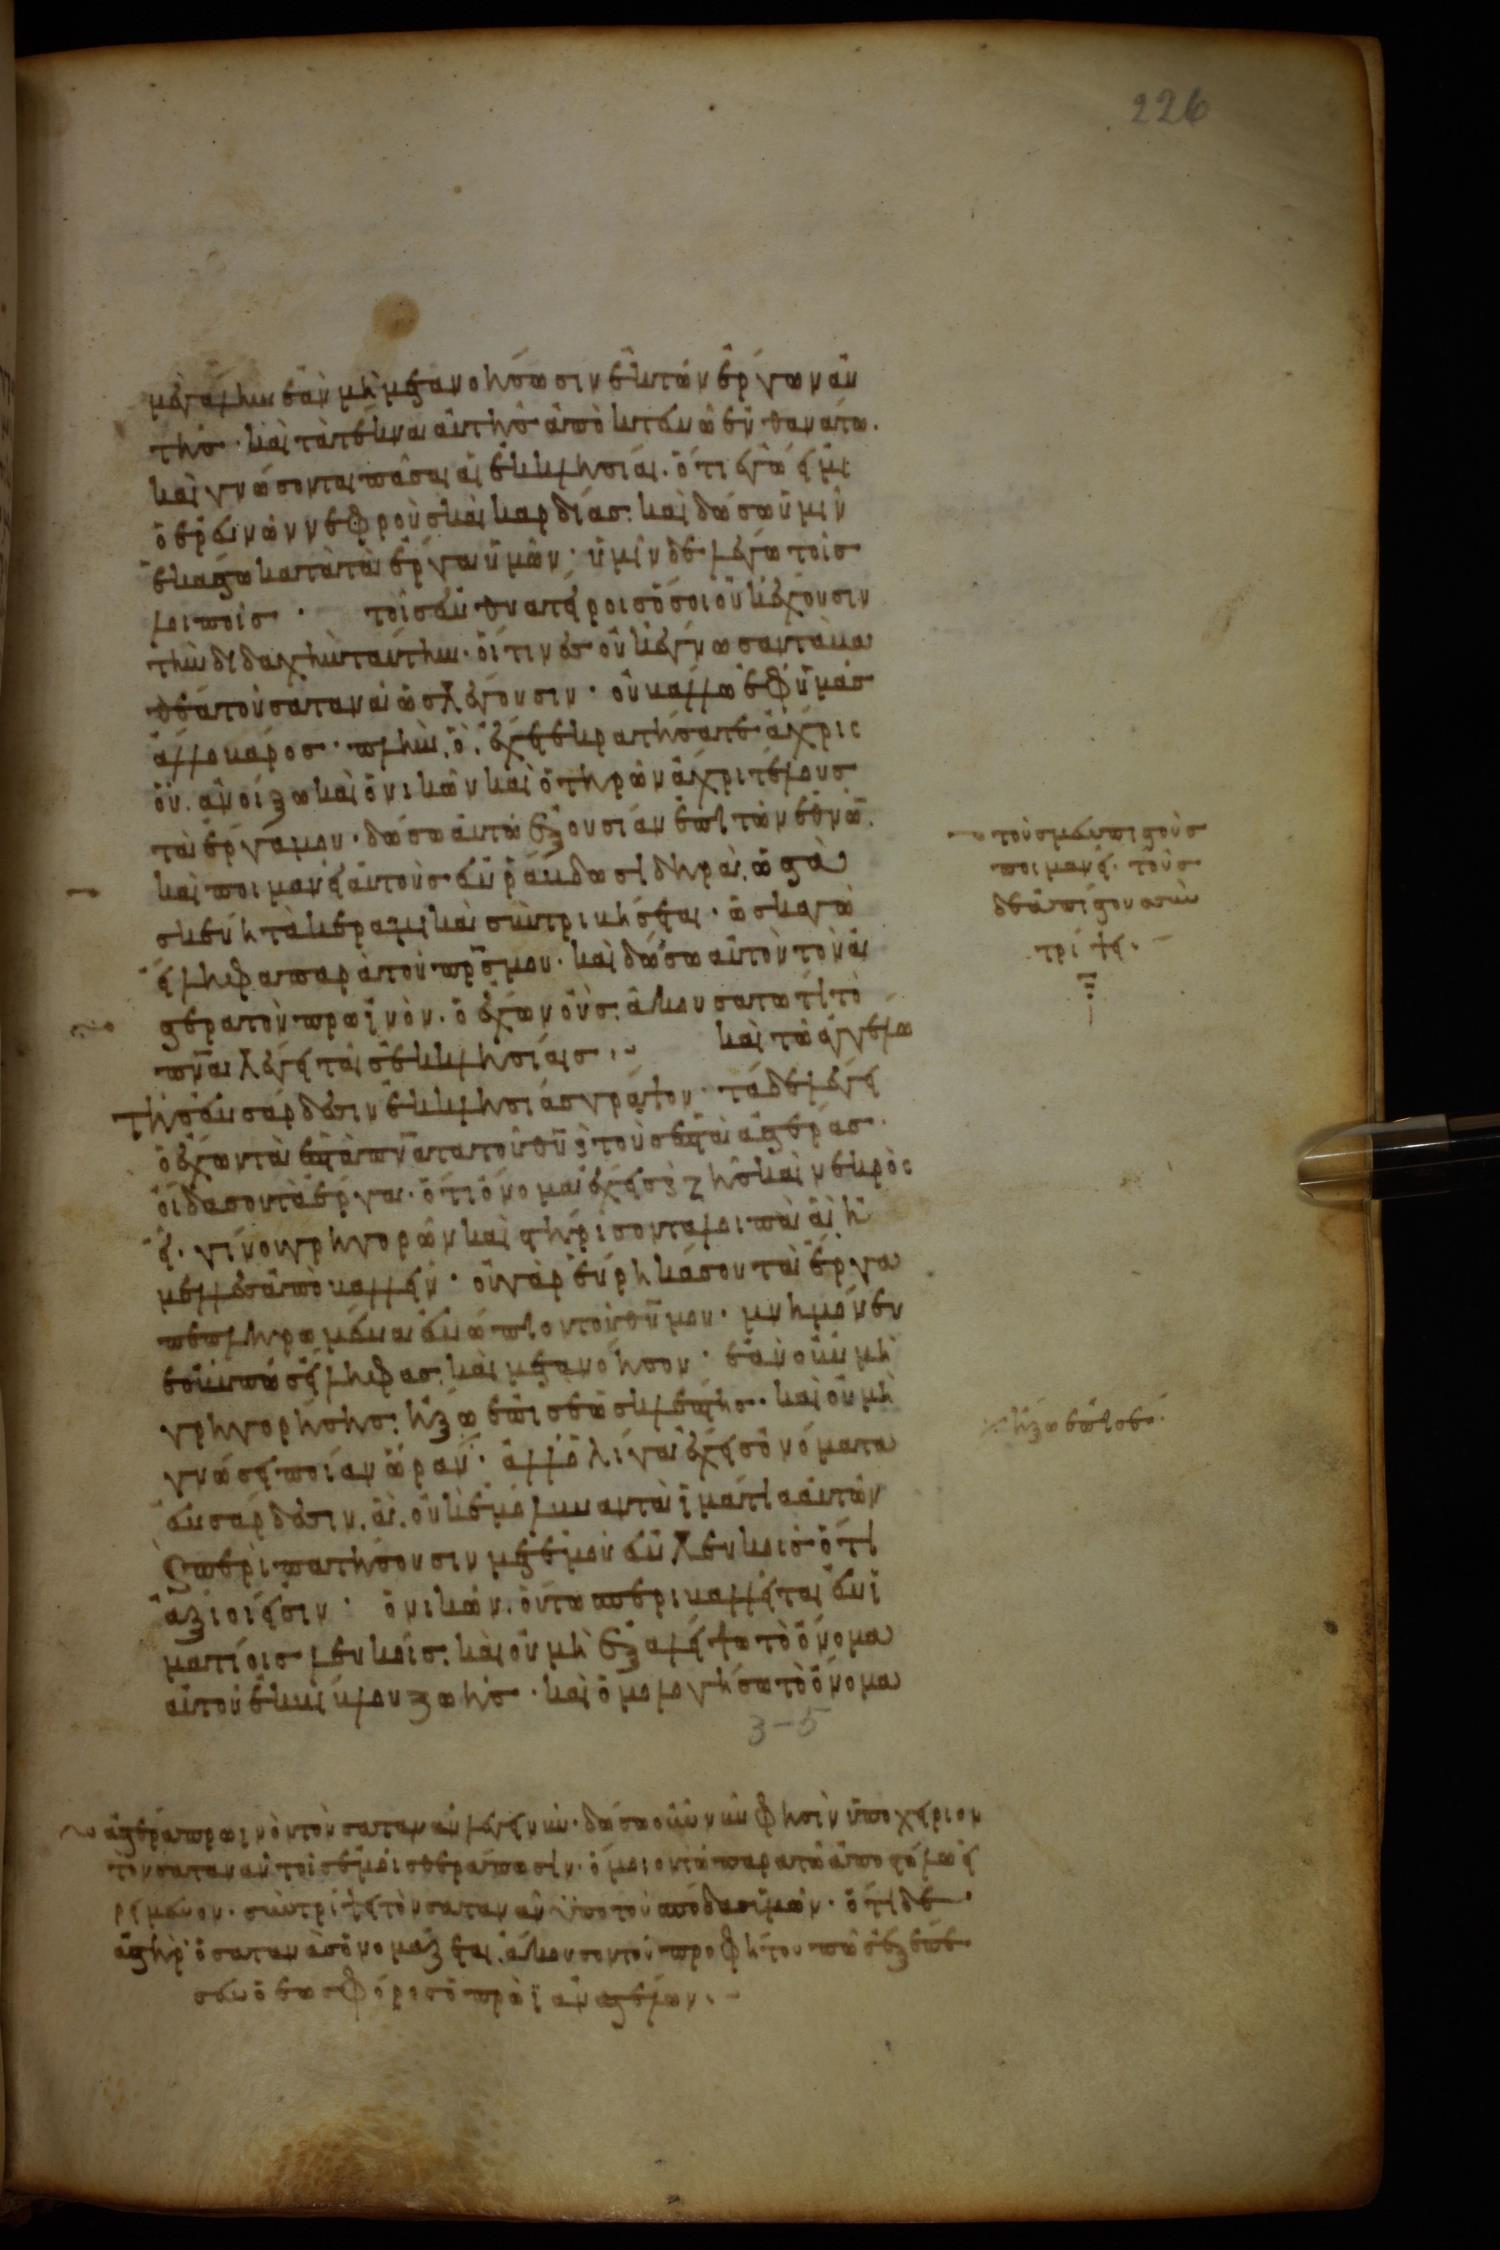 226
μεγάλην ἐὰν μὴ μετανοήσωσιν ἐκ τῶν ἔργων αὐ
τῆς· καὶ τὰ τέκνα αὐτῆς ἀποκτενῶ ἐν θανάτω.
καὶ γνώσονται πᾶσαι αἱ ἐκκλησίαι. ὅτι ἐγώ εἰμι
ὁ ἐρεύνων νεφροὺς καὶ καρδίας. καὶ δώσω ὑμῖν
ἑκάστω κατὰ τὰ ἔργα ὑμῶν· ὑμῖν δὲ λέγω τοῖς
λοιποῖς· τοῖς ἐν θυατείροις ὅσοι οὐκ ἔχουσιν
τὴν διδαχὴν ταύτην. οἵτινες οὐκ ἔγνωσαν τὰ βα
θέα τοῦ σατανᾶ ὡς λέγουσιν· οὐ βάλλω ἐφ ὑμᾶς
ἄλλο βάρος· πλὴν ὃ ἔχετε κρατήσατε ἄχρις
οὗ. ἀνοίξω καὶ ὁ νικῶν καὶ ὁ τηρῶν ἄχρι τέλους
τὰ ἔργα μου· δώσω αὐτῶ ἐξουσίαν ἐπὶ τῶν ἐθνῶ.
καὶ ποιμανεῖ αὐτοὺς ἐν ῥάβδω σιδηρᾶ. ὡς τὰ
σκεύη τὰ κεραμικὰ συντριβήσεται· ὡς κἀγὼ
εἴληφα παρὰ τοῦ πρσ μου· καὶ δώσω αὐτὸν τὸν ἀ
στέρα τὸν πρωϊνὸν. ὁ ἔχων οὖς. ἀκουσάτω τί τὸ
πνα λέγει ταῖς ἐκκλησίαις·~ καὶ τῶ ἀγγέλω
τῆς ἐν σάρδεσιν ἐκκλησίας γράψον· τάδε λέγει
ὁ ἔχων τὰ ἑπτὰ πνατα τοῦ θυ ϛ τοὺς ἑπτὰ ἀστέρας·
οἶδα σου τὰ ἔργα. ὅτι ὄνομα ἔχεις ϛ ζῆς καὶ νεκρὸς
εἶ. γίνου γρηγορῶν καὶ στήρισον τὰ λοιπὰ ἃ ἢ
μελλες ἀποβάλλειν· οὐ γὰρ εὕρηκά σου τὰ ἔργα
πεπληρωμένα ἐνώπιον τοῦ θυ μου· μνημόνευ
ε οὖν πῶς εἴληφας. καὶ μετανόησον· ἐὰν οὖν μὴ
γρηγορήσης. ἥξω ἐπί σε ὡς κλέπτης· καὶ οὐ μὴ
γνώσει ποίαν ὥραν· ἀλλ ὀλίγα ἔχεις ὀνόματα
ἐν σάρδεσιν. ἃ. οὐκ ἐμόλυναν τὰ ἱμάτια αὐτῶν
ϛ περιπατήσουσιν μετ ἐμοῦ ἐν λευκοῖς ὅτι
ἄξιοι εἰσιν· ὁ νικῶν. οὕτω περιβαλλεῖται ἐν ἱ
ματίοις λευκοῖς. καὶ οὐ μὴ ἐξαλείψω τὸ ὄνομα
αὐτοῦ ἐκ βίβλου ζωῆς· καὶ ὁμολογήσω τὸ ὄνομα
3-5
τοὺς μὲν πιστοὺς
ποιμανεῖ. τοὺς
δὲ ἀπίστους συν
τρίψει.
ἥξω ἐπί σε.
ἀστέρα πρωϊνὸν τὸν σαταναν λέγει νῦν. δώσω οὖν νῦν φησὶν ὑποχείριον
τον σαταναν τοῖς ἐμοῖς θεράπουσιν. ὅμοιον τῶ παρὰ τῶ ἀποστόλω εἰ
ρημένον. συντρίψει τὸν σαταναν ὑπὸ τοὺς πόδας ἡμῶν. ὅτι δὲ
ἀστὴρ ὁ σατανᾶς ὀνομάζεται. ἄκουσον τοῦ προφήτου πῶς ἐξέπε
σεν ὁ ἑωσφόρος ὁ πρωῒ ἀνατέλλων.